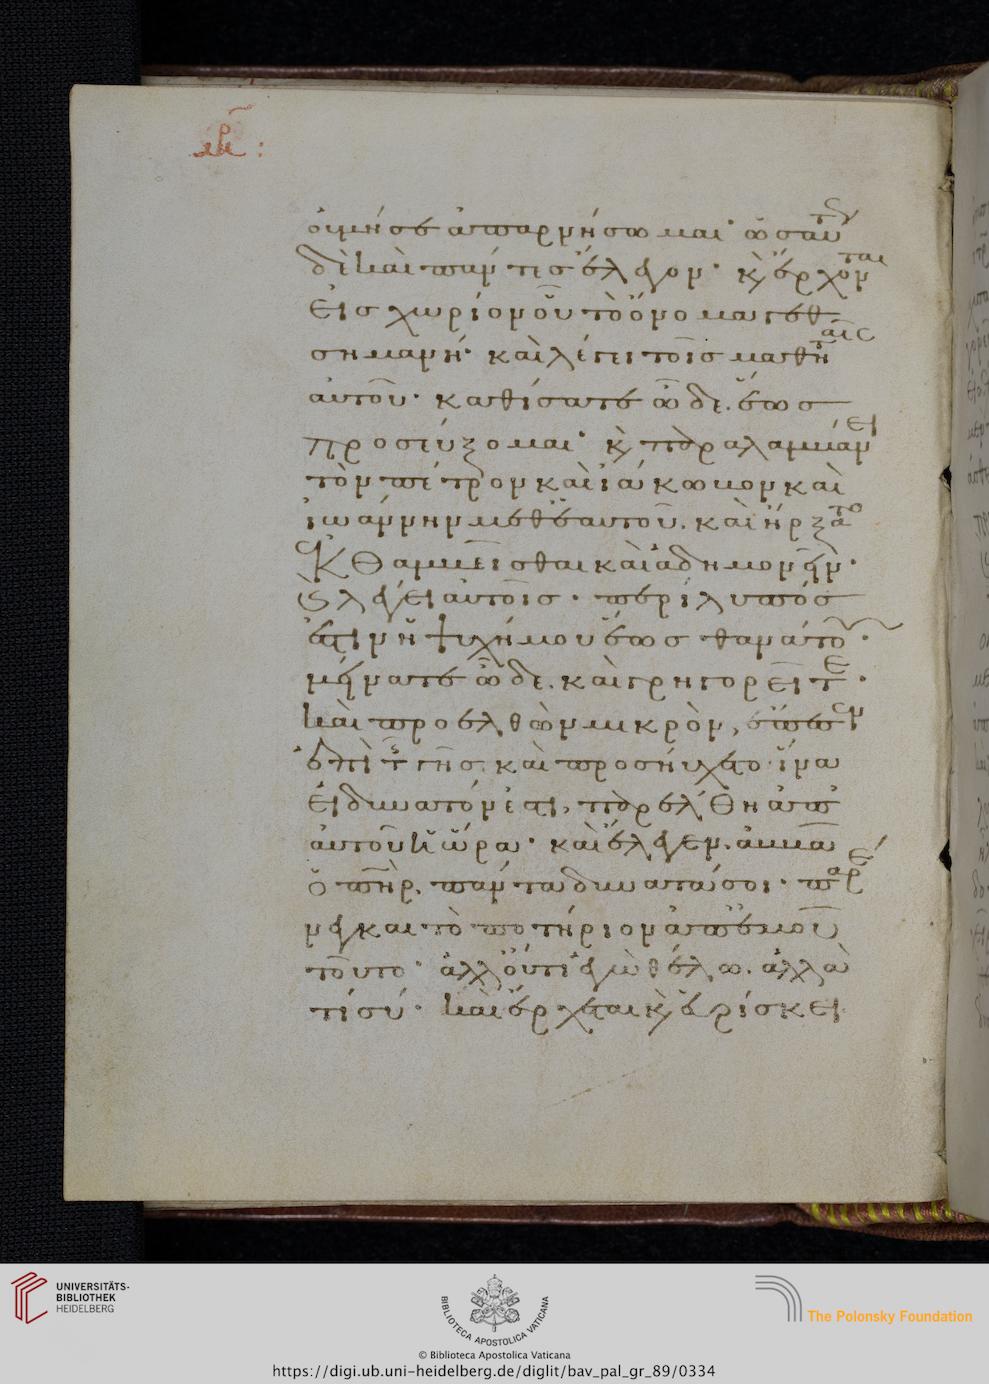 οὐ μή σε ἀπαρνήσωμαι· ὡσαύτως
δὲ καὶ πάντες ἔλεγον· κ(αὶ) ἔρχονται
εἰς χωρίον οὗ τὸ ὄνομα γεθ
σημανῆ· καὶ λέγει τοῖς μαθηταῖς
αὐτοῦ· καθίσατε ὧδε. ἕως
προσεύξομαι· κ(αὶ) παραλαμβάνει
τὸν πέτρον καὶ ἰάκωβον καὶ
ἰωάννην μεθ' ἑαυτοῦ. καὶ ἤρξατο
ἐκθαμβεῖσθαι καὶ ἀδημονεῖν·
κ(αὶ) λέγει αὐτοῖς· περίλυπός
ἐστιν ἡ ψυχή μου ἕως θανάτου·
μείνατε ὧδε. καὶ γρηγορεῖτε·
καὶ προσελθὼν μικρὸν, ἔπεσεν
ἐπὶ τῆς γῆς. καὶ προσηύχετο ἵνα
εἰ δυνατόν ἐστι, παρέλθη ἀπ'
αὐτοῦ ἡ ὥρα· καὶ ἔλεγεν. ἀββᾶ
ὁ π(ατ)ὴρ. πάντα δυνατά σοι· παρέ
νεγκαι τὸ ποτήριον ἀπ' ἐμοῦ
τοῦτο· ἀλλ' οὔ τι ἐγὼ θέλω. ἀλλὰ
τί σύ· καὶ ἔρχεται κ(αὶ) εὑρίσκει
UNIVERSITÄTS-
BIBLIOTHEK
HEIDELBERG
BIBLIOTECA APOSTOLICA VATICANA
The Polonsky Foundation
© Biblioteca Apostolica Vaticana
https://digi.ub.uni-heidelberg.de/diglit/bav_pal_gr_89/0334